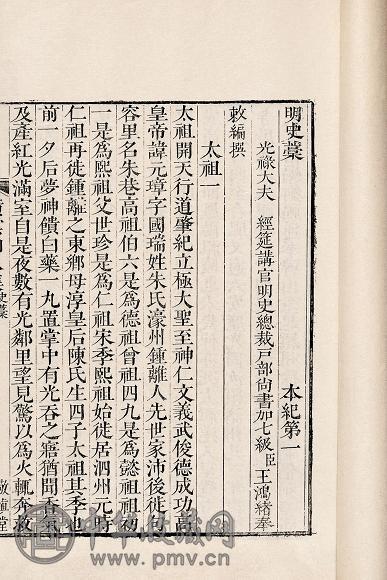 明史藁 本紀第一
光祿大夫 經筵講官明史總裁戶部尙書加七級臣王鴻緒奉
敕編撰
太祖一
太祖開天行道肇紀立極大聖至神仁文義武俊德成功高
皇帝諱元璋字國瑞姓朱氏濠州鍾離人先世家沛後徙句
容里名朱巷高祖伯六是爲德祖曾祖四九是爲懿祖祖初
一是爲熙祖父世珍是爲仁祖宋季熙祖始徙居泗州元時
仁祖再徙鍾離之東鄉母淳皇后陳氏生四子太祖其季也
前一夕后夢神饋白藥一丸置掌中有光吞之寤猶聞香氣
及產紅光滿室自是夜數有光鄰里望見驚以爲火輒奔救
史藁
敬愼堂
中華收藏网
www.pmv.cn